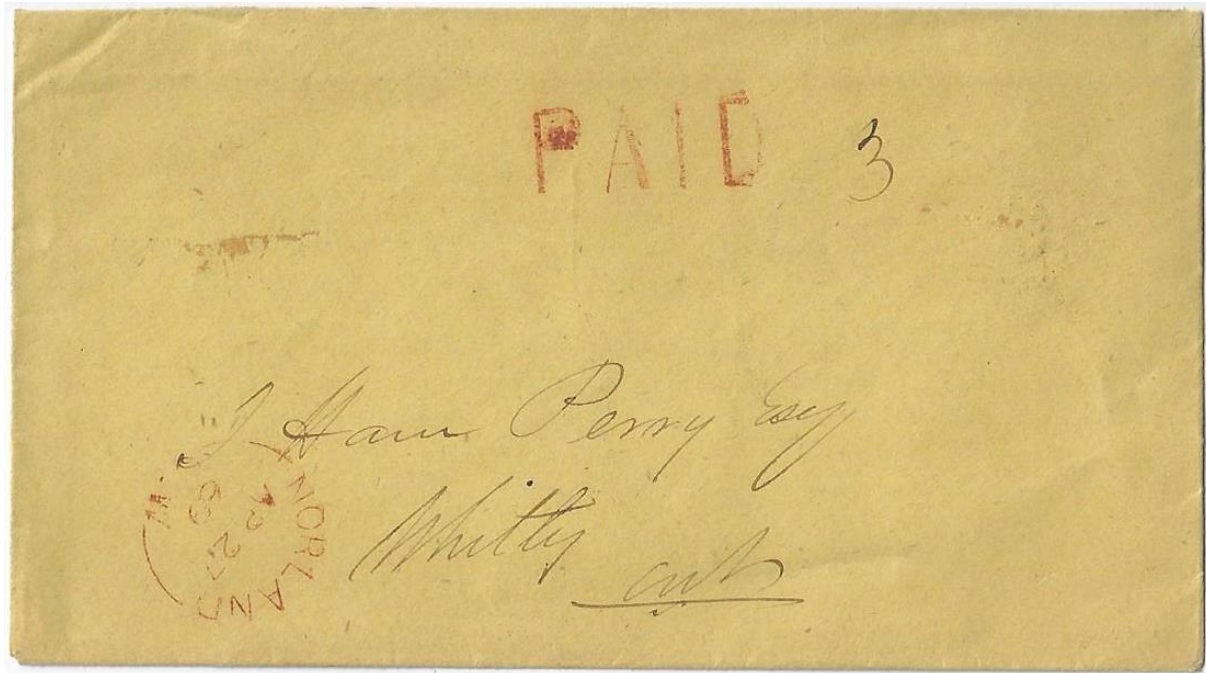 PAID 3
J Ham Perry Esq
Whitby
Ont
NORLAND
AP 27
69
.W